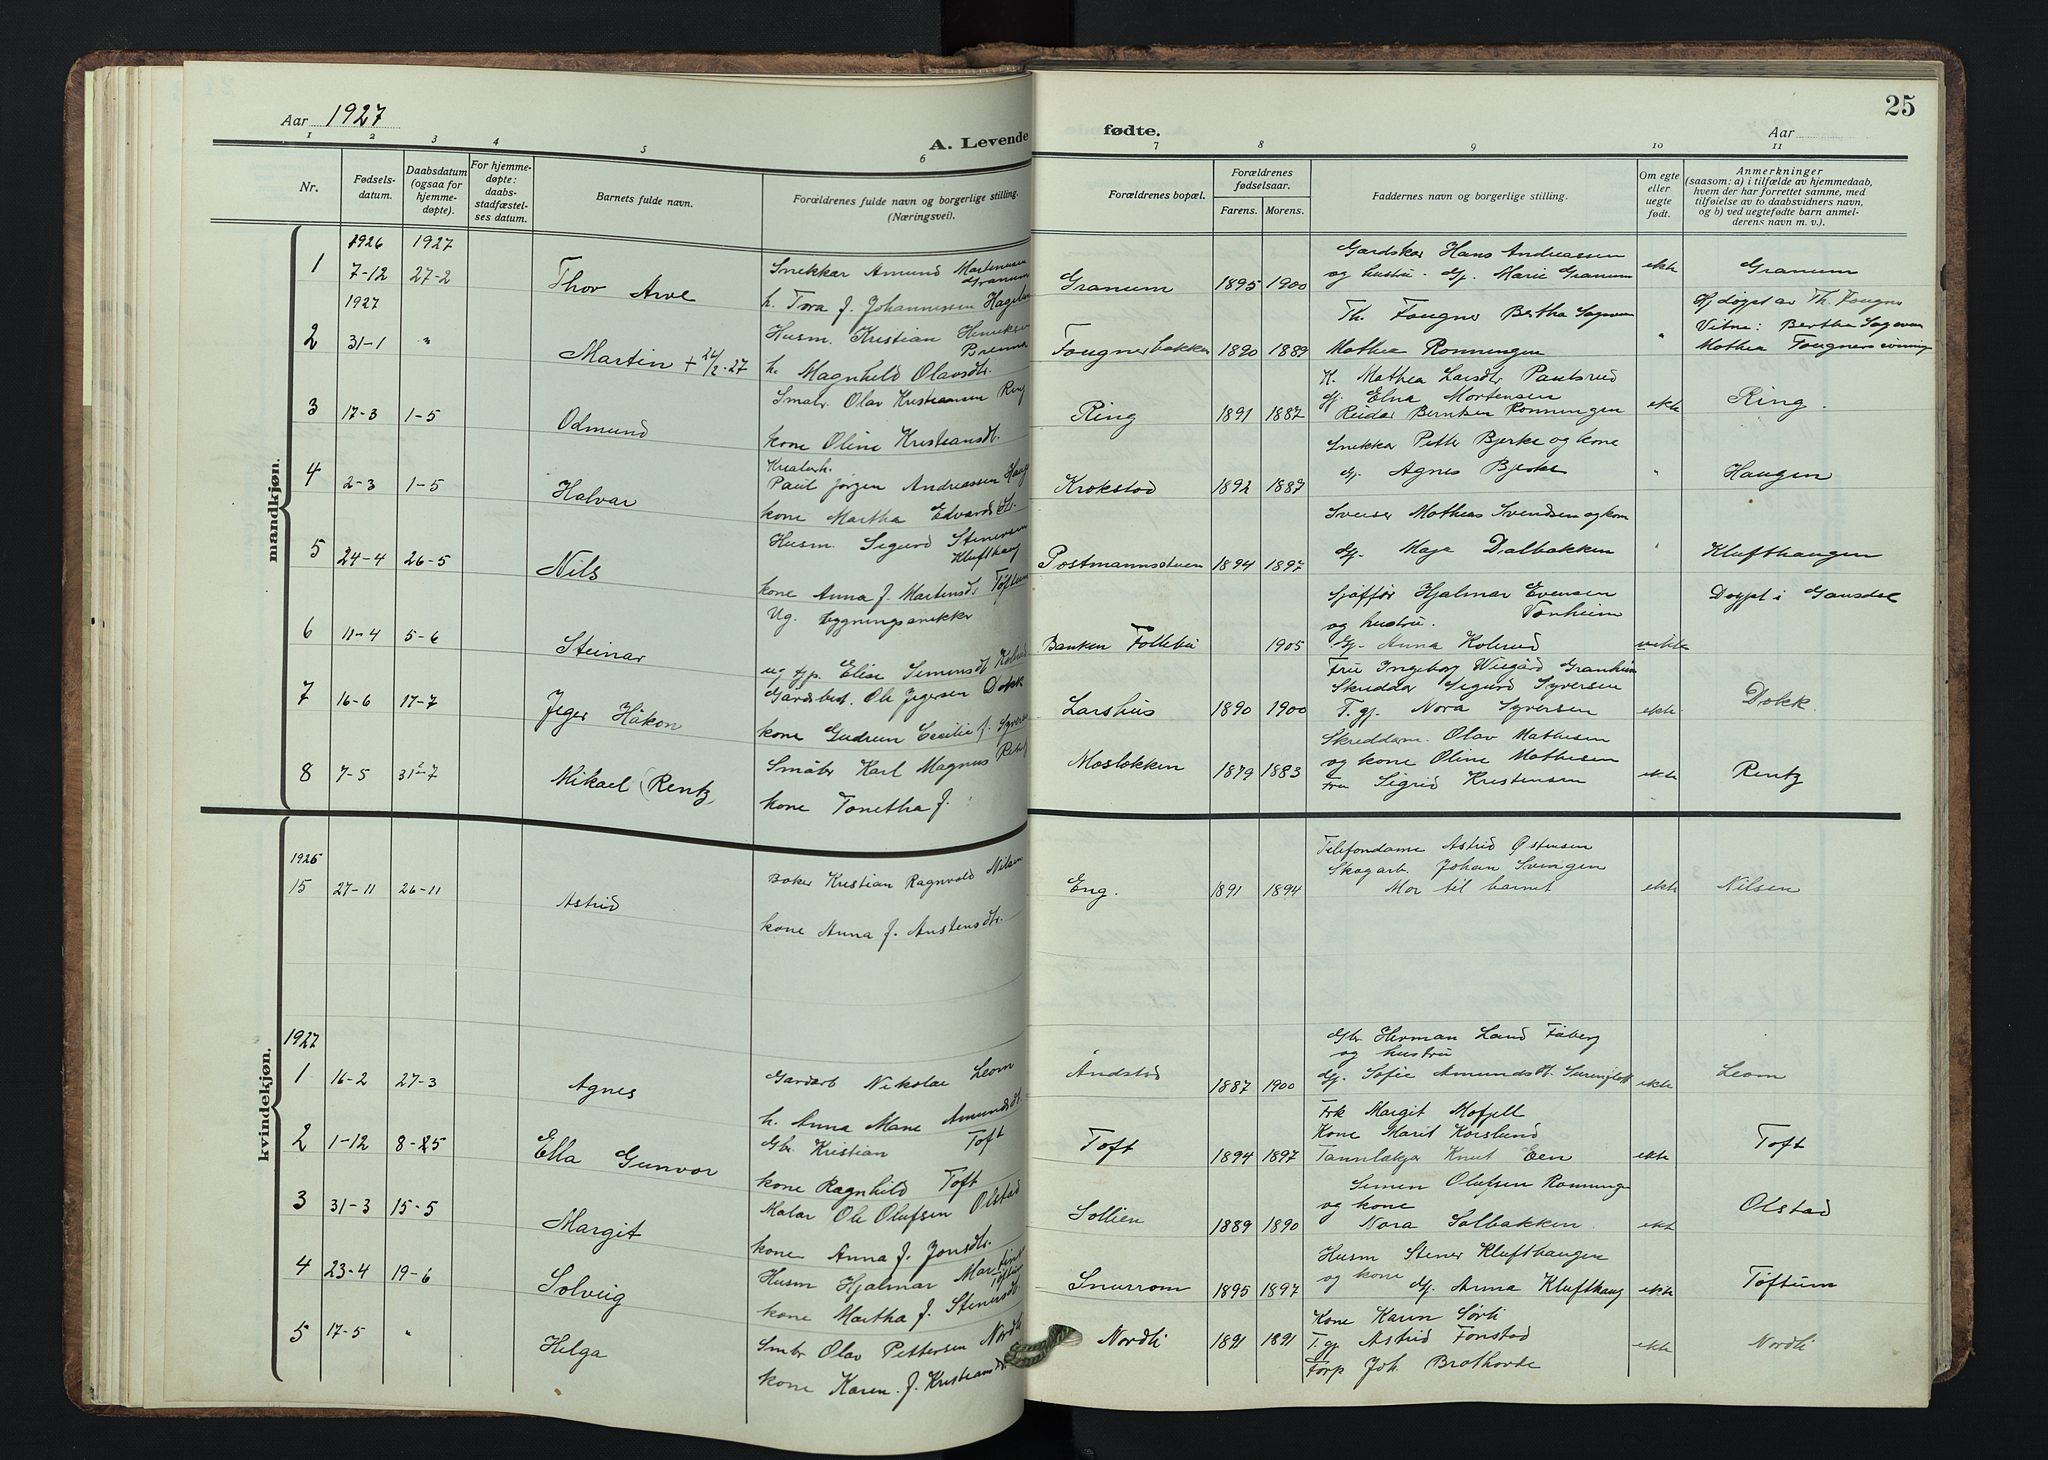 Aar 1927
A. Levende fødte.
Aar
25
1 2 3 4 5 6 7 8 9 10 11
Nr.
Fødsels-datum.
Daabsdatum (ogsaa for hjemme-døpte).
For hjemme-døpte: daabs-stadfæstel-ses datum.
Barnets fulde navn.
Forældrenes fulde navn og borgerlige stilling. (Næringsvei).
Forældrenes bopæl.
Forældrenes fødselsaar. Farens. Morens.
Faddernes navn og borgerlige stilling.
Om egte eller uegte født.
Anmerkninger (saasom: a) i tilfælde av hjemmedaab, hvem der har forrettet samme, med tilføielse av to daabsvidners navn, og b) ved uegtefødte barn anmel-derens navn m. v.).
mandkjøn.
1926 1927
1 7-12 27-2 Thor Arve
Snekker Amund Martinusen Granum
h. Tora f. Johannessen
Granum 1895 1900
Gardskar Hans Andreassen
og hustru. Gj. Marie Granum
ekte Granum
1927
2 31-1 " Martin + 24/2-27
Husm. Kristian
h. Magnhild Olavsdtr.
Fougnerbakken 1890 1889
Th. Fougner Bertha
Mathea Rønningen
" Hj døypt av Th. Fougner
Vitne: Bertha
Mathea
3 17-3 1-5 Odmund
Småbr. Olav Kristiansen Ring
kone Oline Kristiansdt.
Ring 1891 1887
K. Mathea Larsdtr Paulsrud
Gj. Elna Mortensen
Reidar Berntsen Rønningen
ekte Ring.
4 2-3 1-5 Halvar
Paul Jørgen Andreassen Haug
kone Martha Edvardsdt.
Krokstad 1892 1887
Snekker Petter Bjerke og kone
gj. Agnes Bjerke
" Haugen
5 24-4 26-5 Nils
Husm. Sigurd Stenersen Klufthaug
kone Anna f. Martinsdt. Tøftum
Postmannsstuen 1894 1897
Sveiser Mathias Svendsen og kone
gj. Maja Dalbakken
" Klufthaugen
6 11-4 5-6 Steinar
Ug. bygningssnikker
ug gp. Elise Simensdt.
Bankens Follebu 1905
Sjåffør Hjalmar Evensen
og hustru.
Gj. Anna
Fru Ingeborg Wiegård Granheim
uekte Døypt i Gausdal
7 16-6 17-7 Jeger Håkon
Gardbest. Ole Jegersen Dokk
kone Gudrun Cecilie f.
Larshus 1890 1900
Skredder Sigurd Syversen
T. gj. Nora Syversen
ekte Dokk.
8 7-5 31-7 Mikael (Rentz
Småbr Karl Magnus
kone Tonetha f.
Mosbakken 1879 1883
Skreddem. Olav Mathisen
og kone Oline Mathisen
Fru Sigrid Kristensen
ekte Rentz
kvindekjøn.
1926
15 27-11 26-11 Astrid
Baker Kristian Ragnvald Nilsen
kone Anna f. Austensdtr.
Eng. 1891 1894
Telefondame Astrid Østensen
Skogarb. Johan
Mor til barnet
ekte Nilsen
1927
1 16-2 27-3 Agnes
Gardarb Nikolai Leorn
h. Anna Marie Amundsdt.
Åndstad 1887 1900
Gbr Herman Land Fåberg
og hustru
Gj. Sofie Amundsdt.
ekte Leorn
2 1-12 8-5 Ella Gunvor
Gbr Kristian Toft
kone Ragnhild Toft
Toft 1894 1897
Frk Margit Mofjell
Kone Marit Korslund
Tannlækjer Knut Een
ekte Toft
3 31-3 15-5 Margit
Malar Ole Olufsen Olstad
kone Anna f. Jonsdtr.
Sollien 1889 1890
Simen Olufsen Rønninge
og kone
Nora Solbakken
ekte Olstad
4 23-4 19-6 Solveig
Husm Hjalmar Tøftum
kone Martha f. Stenersdt.
Snurrom 1895 1897
Husm Stener Klufthaugen
og kone gj. Anna Klufthaug
ekte Tøftum
5 17-5 " Helga
Smbr Olav Pettersen Nordli
kone Karen f. Kristiansdtr.
Nordli 1891 1891
Kone Karen Sørli
T. gj Astrid Fonstad
Forp Joh. Brathovde
ekte Nordli